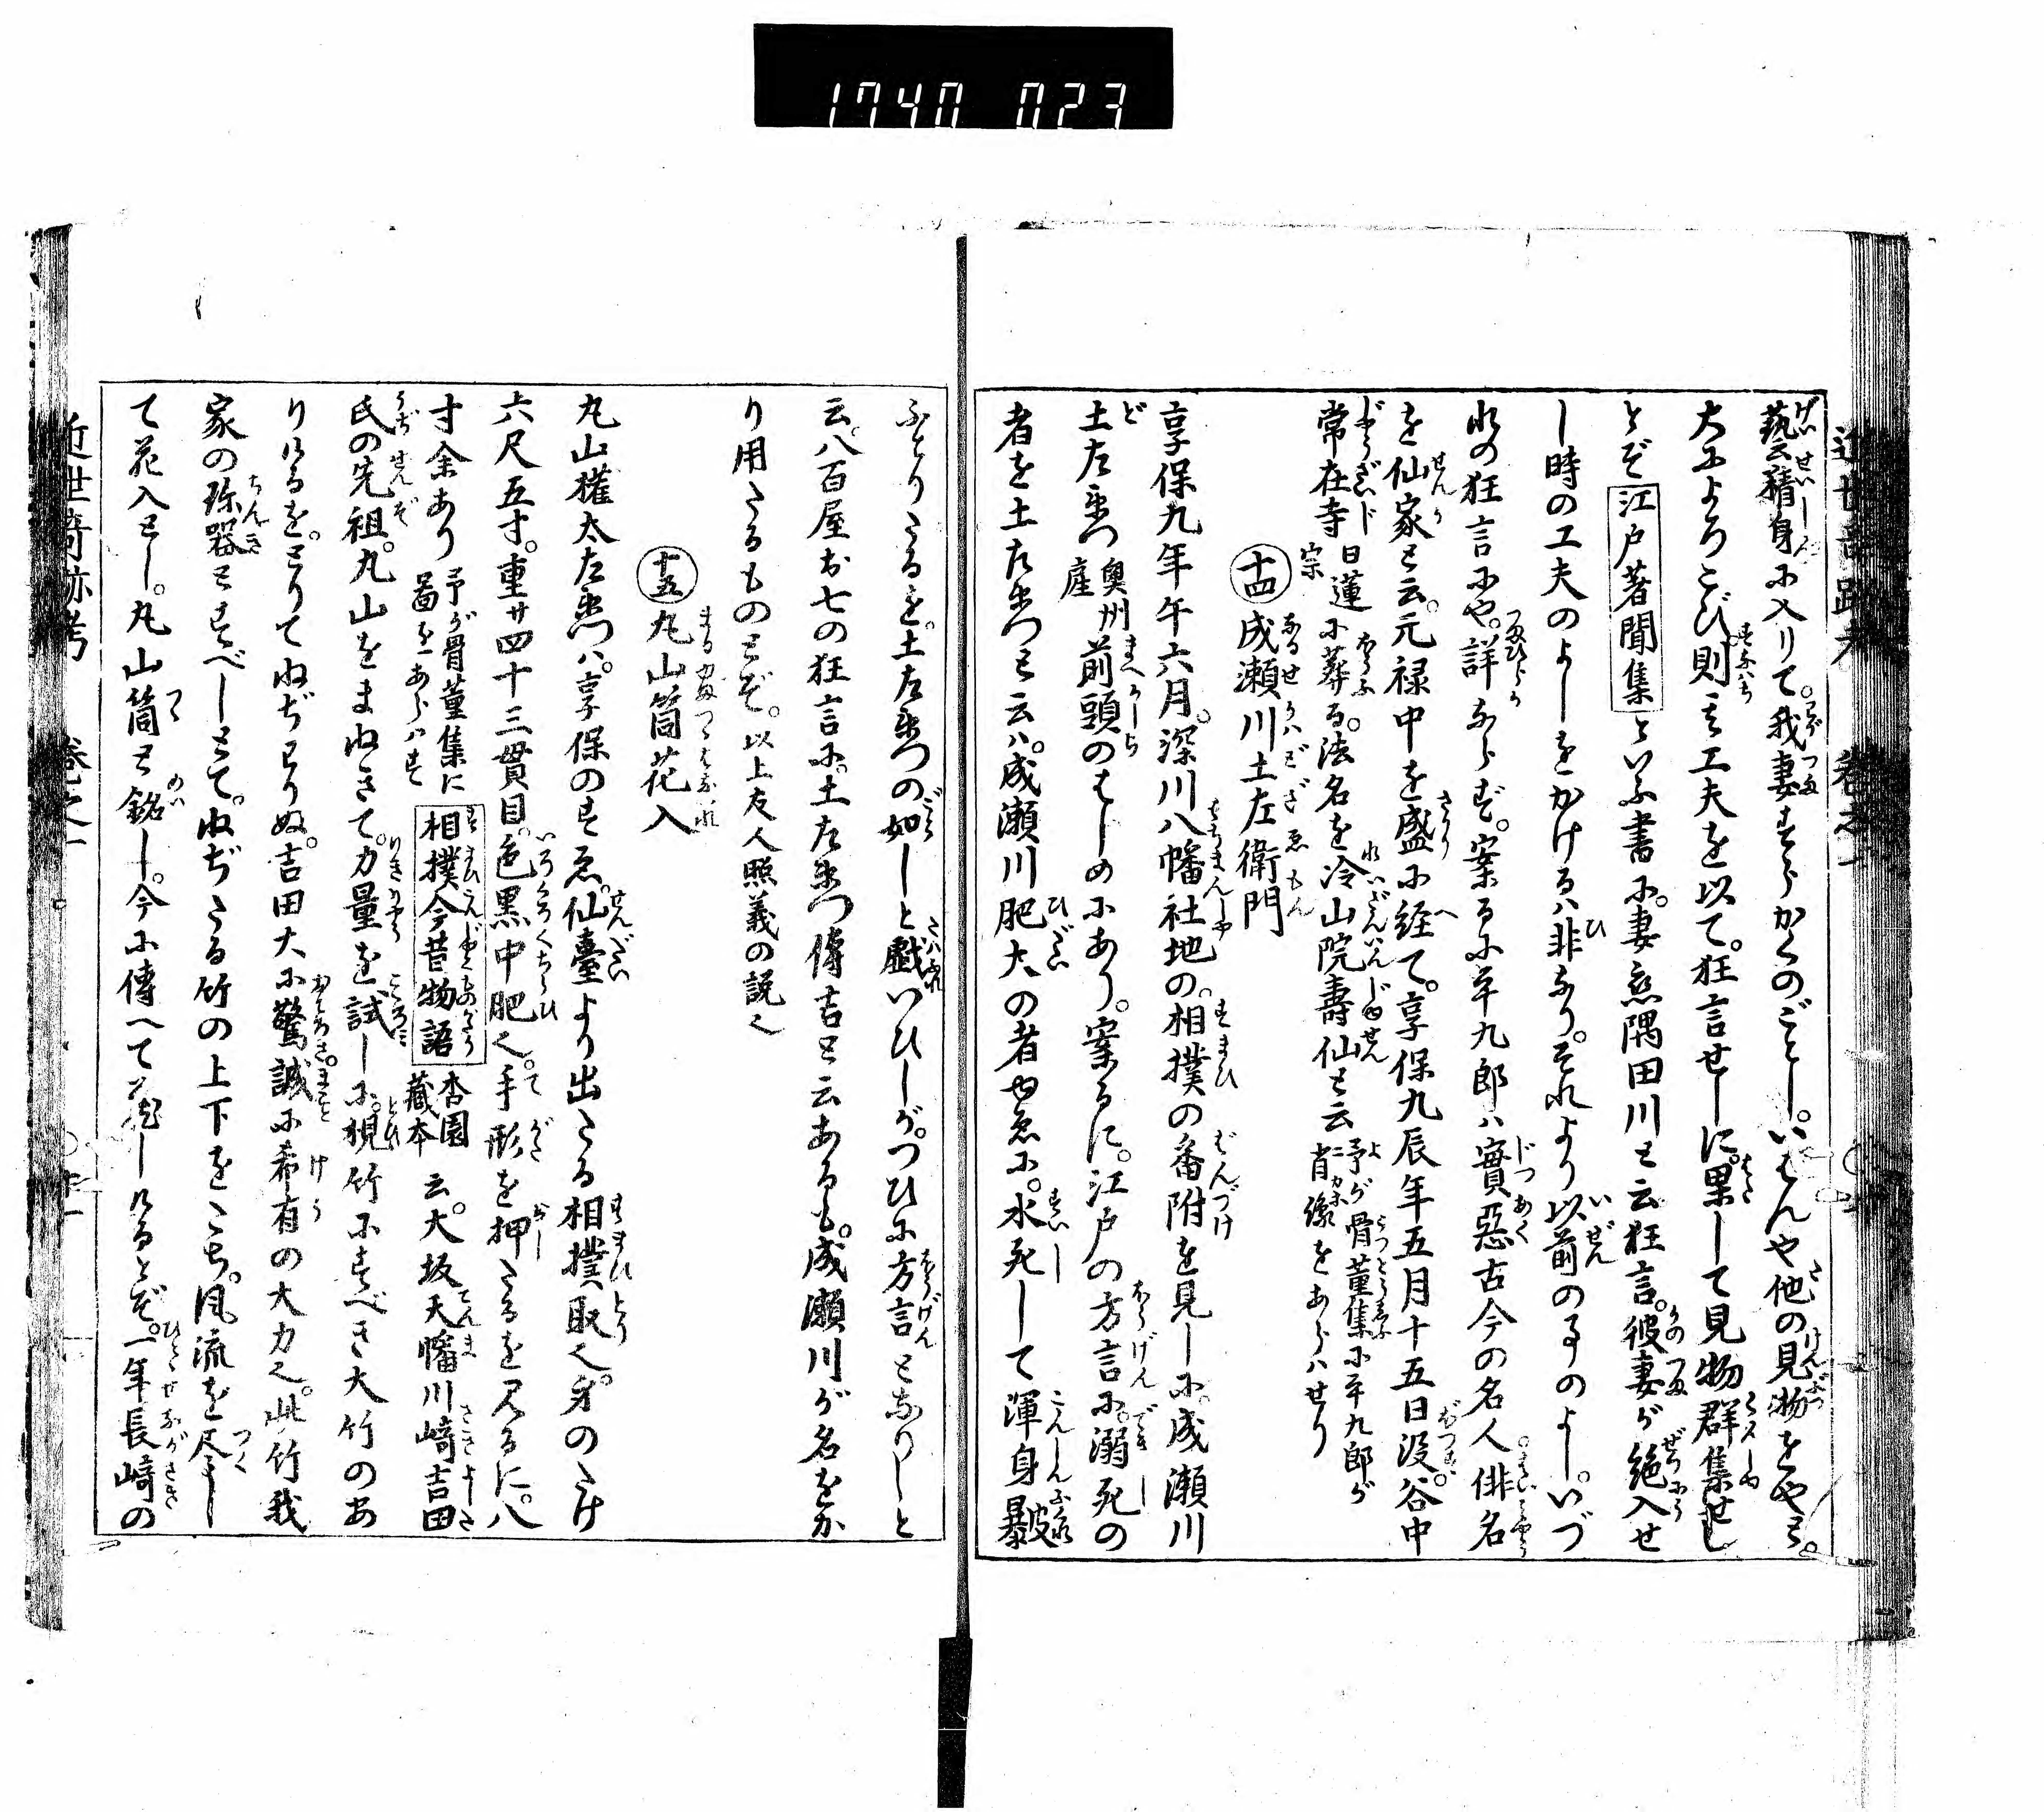 1740 023
藝精身に入りて。我妻すらかくのごとし。いはんや他の見物をや。と。
大によろこび。則其工夫を以て。狂言せしに。果して見物群集せし
とぞ江戸著聞集といふ書に。妻恋隅田川と云狂言。彼妻が絶入せ
し時の工夫のよしをかけるハ非なり。それより以前の事のよし。いづ
れの狂言にや。詳ならず。案るに平九郎ハ實惡古今の名人俳名
を仙家と云。元禄中を盛に経て。享保九辰年五月十五日没。谷中
常在寺日蓮宗に葬る。法名を冷山院壽仙と云予が骨董集に平九郎が肖像をあらハせり
十四 成瀬川土左衛門
享保九年午六月。深川八幡社地の。相撲の番附を見しに。成瀬川
土左衛門奥州産前頭のはじめにあり。案るに。江戸の方言に。溺死の
者を土左衛門と云ハ。成瀬川肥大の者ゆゑに。水死して渾身暴皮
ふとりたるを。土左衛門の如しと戯いひしが。つひに方言となりしと
云。八百屋お七の狂言に。土左衛門傳吉と云あるも。成瀬川が名をか
り用たるものとぞ。以上友人照義の説也
十五 丸山筒花入
丸山權太左衛門ハ。享保のすゑ。仙臺より出たる相撲取也。身のたけ
六尺五寸。重サ四十三貫目。色黒中肥也。手形を押たるを見るに。八
寸余あり予が骨董集に畧圖をあらハす相撲今昔物語杏園藏本云。大坂天幡川﨑吉田
氏の先祖。丸山をまねきて。力量を試しに。椳竹にすべき大竹のあ
りけるを。とりてねぢとりぬ。吉田大に驚誠に希有の大力也。此竹我
家の珎器とすべしとて。ねぢたる竹の上下をたち。風流を尽し
て花入とし。丸山筒と銘し。今に傳へて蔵しけるとぞ。一年長﨑の
近世奇跡考 巻之一